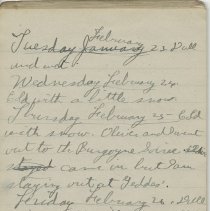 February
Tuesday January 23 Dull
and wet.
Wednesday February 24.
Cold with a little snow.
Thursday February 25 - Cold
with snow. Oliver and went
out to the Burgoyne
stayed came in but I am
staying out at Geddes'.
Friday February 26. Dull